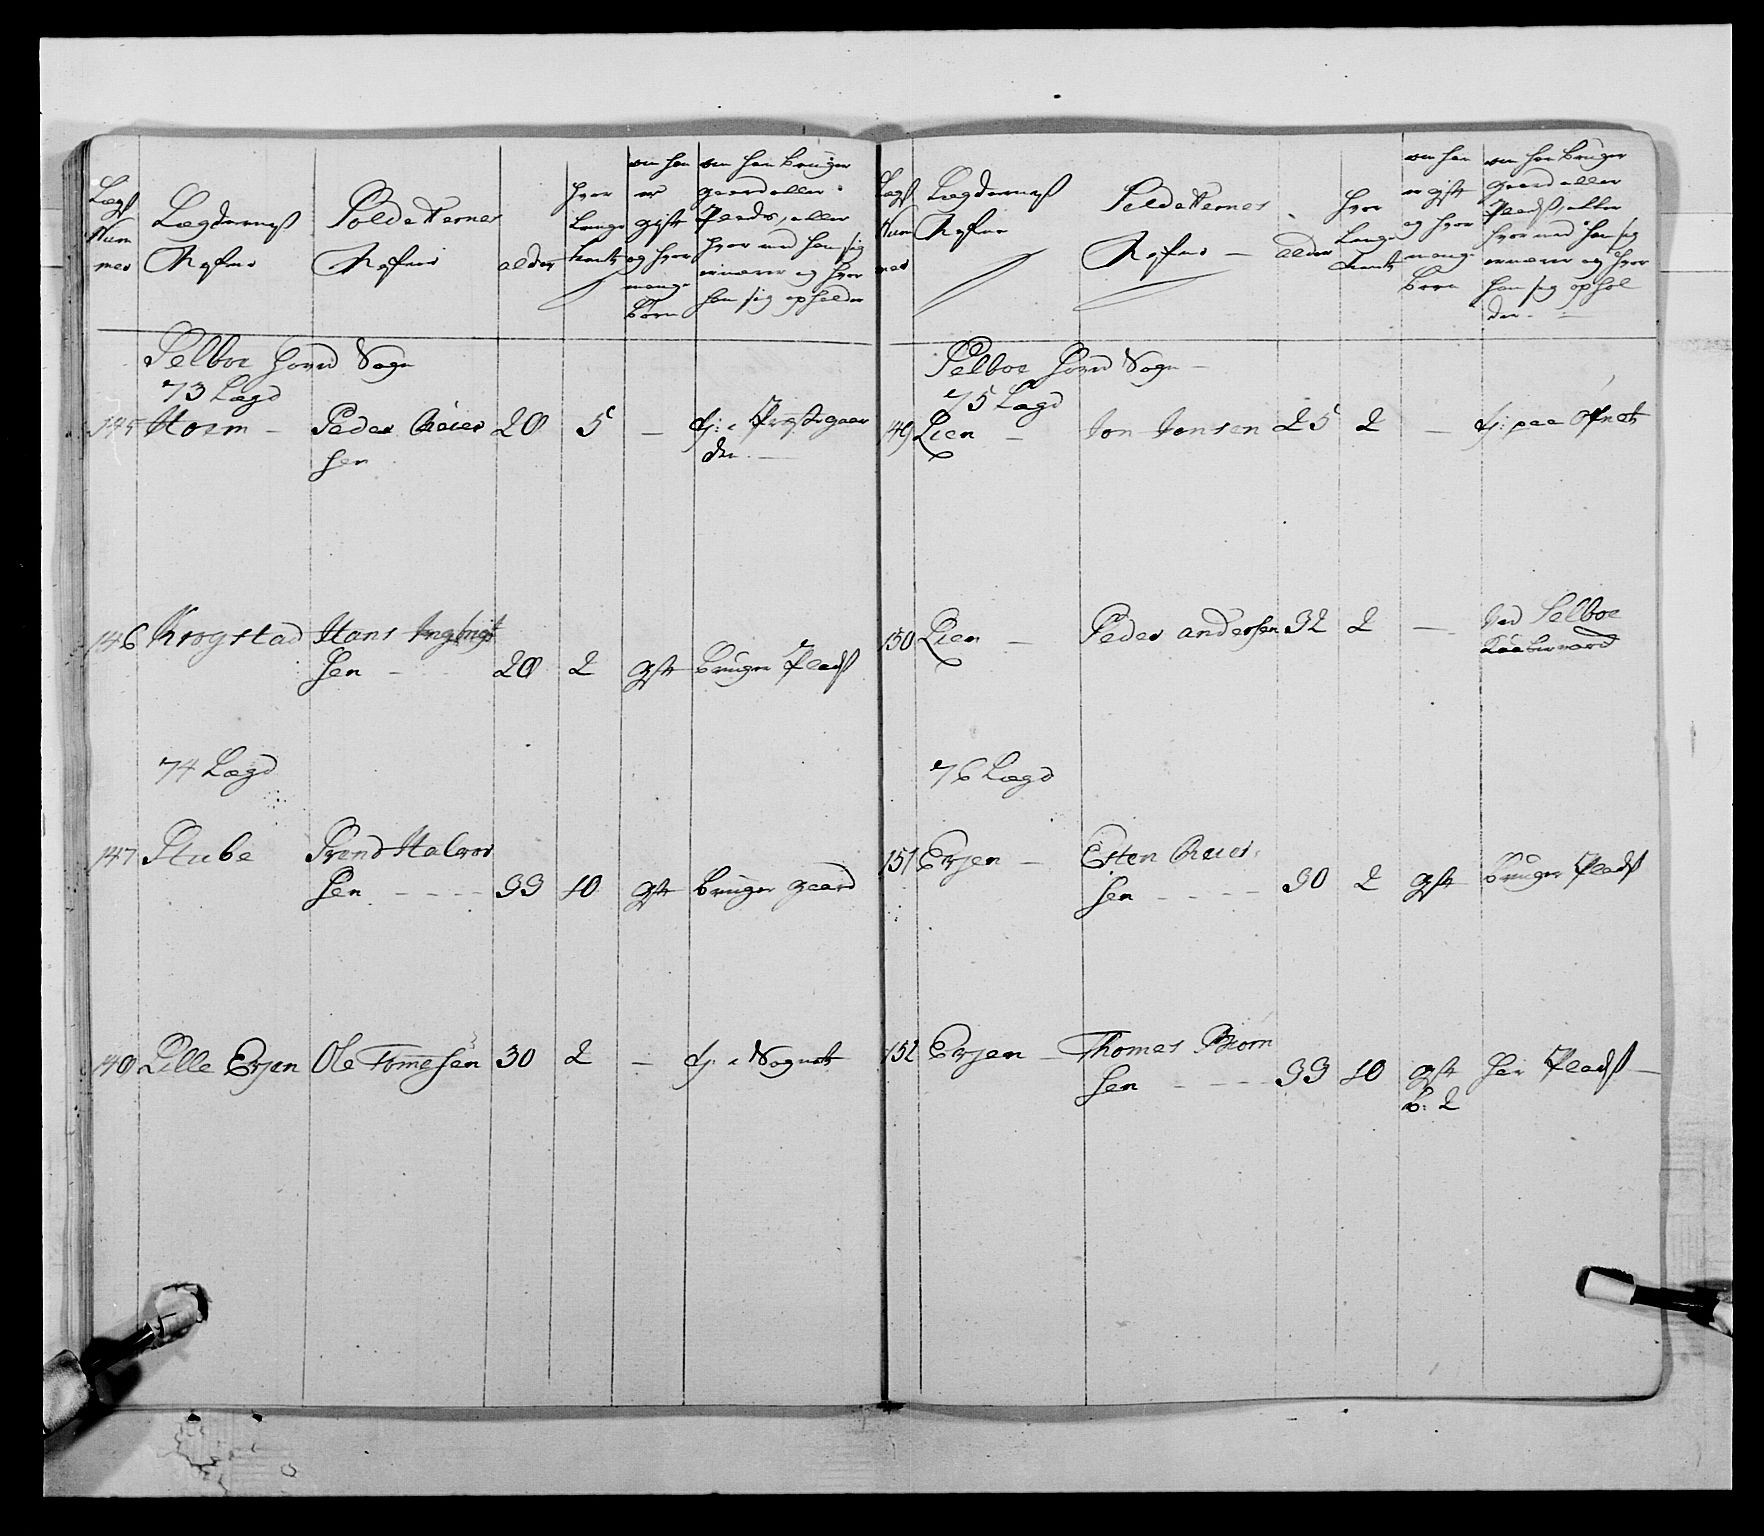 Lægs
Num
mer
Lægdernes
Nafne
Soldatternes
Nafne
alder
hvor
Længe
tient
om han
er
gift
og hvor
mange
Børn
om han bruger
gaard eller
Plads, eller
hvor med han sig
ernærer og hvor
han sig opholder
Selboe Hovd Sogn
73 Lægd
145 Moem - Peder Olver 28 5 - tj: i Præstegaar
sen den
146 Krogstad Hans Ingbrigt
sen - 28 2 gift bruger Plads
74 Lægd
147 Stube Trend Halvor
sen - - - - 33 10 gift bruger gaard
148 Lille Evjen Ole Tommesen 30 2 - tj: i Sognet
Lægs
Num
mer
Lægdernes
Nafne
Soldatternes
Nafne -
alder
hvor
Længe
tient
om han
er gift
og hvor
mange
Børn
om han bruger
gaard eller
Plads, eller
hvor med han sig
ernærer og hvor
han sig ophol
der -
Selboe Hovd Sogn -
75 Lægd
149 Lien - Jon Jonsen 25 2 - tj: paa
150 Lien - Peder andersen 32 2 - ved Selboe
Kaaberværd
76 Lægd
151 Evjen - Esten Oluf
sen - - - - 30 2 gift bruger Plads
152 Evjen - Thomas Biørn
sen - - - - 33 10 gift har Plads -
b: 2